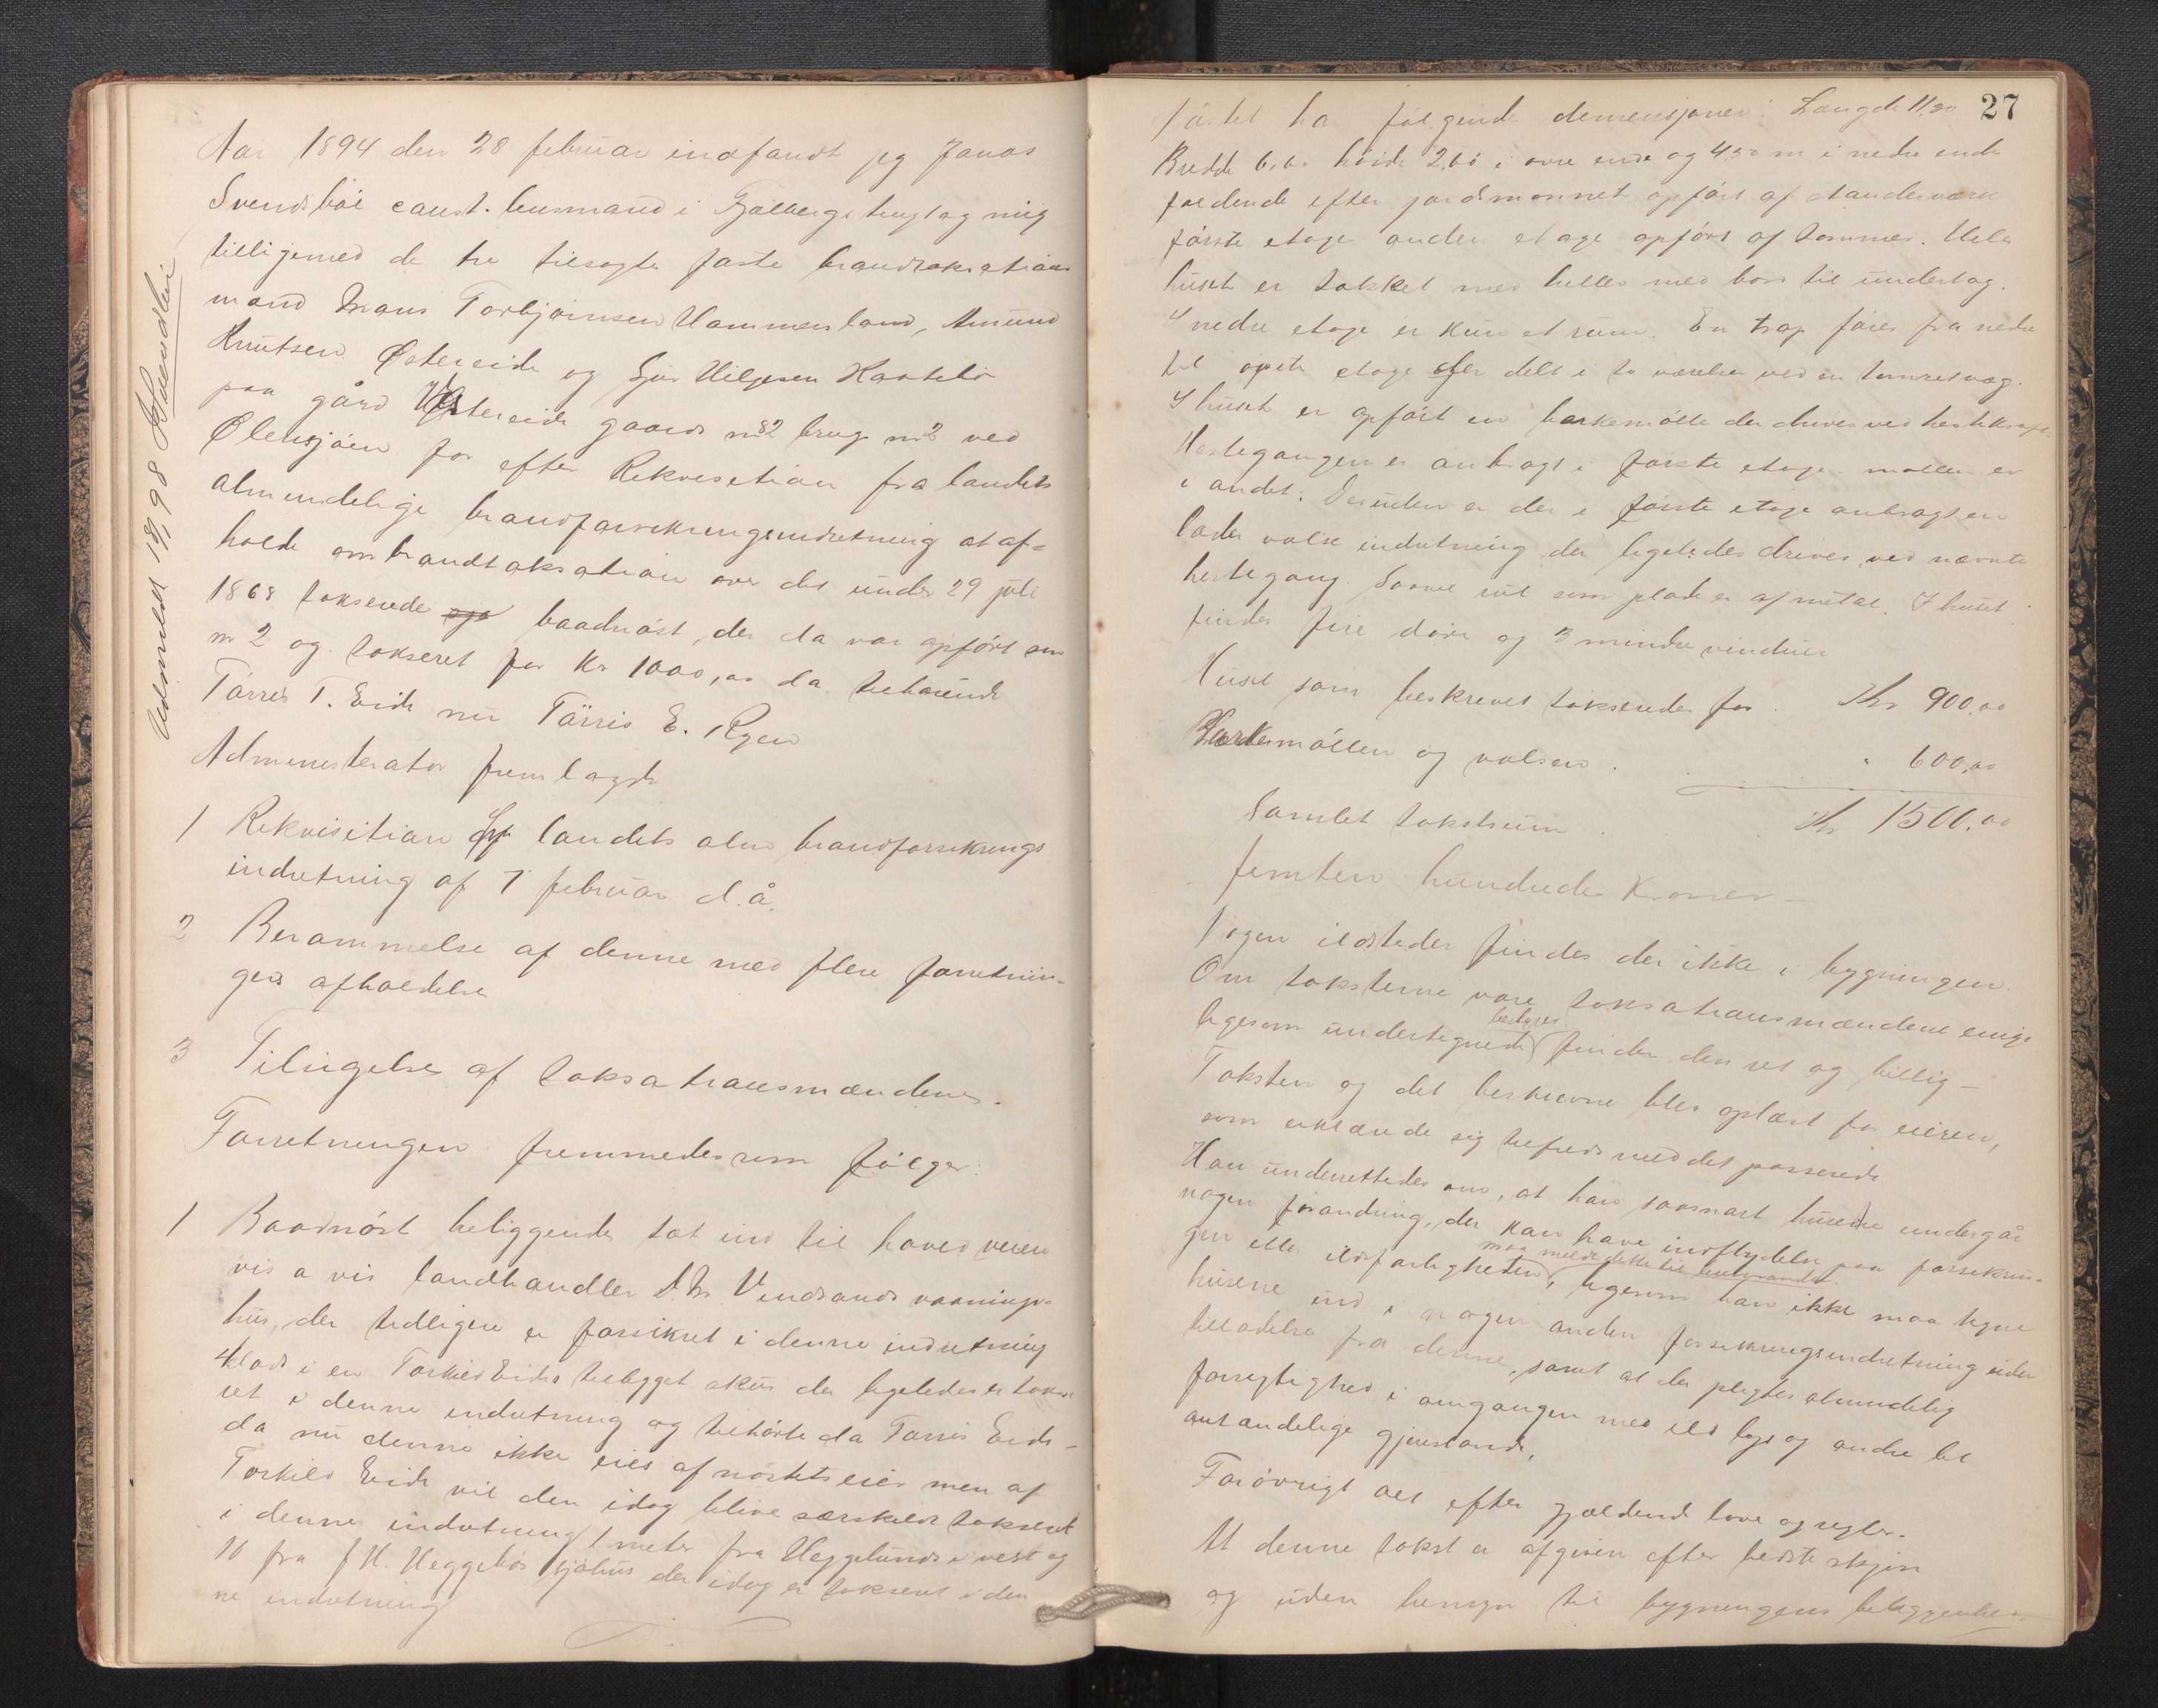 Aar 1894 den 28 februar indfandt jeg Jonas
Svendsböe const. lensmand i Fjelbergs tinglag mig
tilligemed de tre tilsagte faste brandtaksations
mænd Hans Torbjörnsen Hammersland, Amund
Knutsen Østereide og Sjur Helgesen
paa gård Østereide gaards no 82 brugs no 2 ved
Ølensjöen for efter Rekvisition fra landets
almindelige brandforsikringsindretning at af=
holde ombrandtaksation over det under 29 juli
1868 takserede baadnöst, der da var opfört som
no 2 og takseret for Kr 1000,00 da tilhörende
Törres T. Eide nu Törris E.
Administrator fremlagde
1 Rekvisition fra landets alm brandforsikrings
indretning af 7 februar d.å.
2 Berammelse af denne med flere forretnin-
gers afholdelse
3 Tilsigelse af taksationsmændene.
Forretningen fremmedes som fölger:
1 Baadnöst beliggende tæt ind til hovedveien
vis a vis landhandler Vindsands vaanings-
hus, der tidligere er forsikret i denne indretning
Klods i er Torkild Eides tilbygget skur der ligeledes er takse
ret i denne indretning og tilhörte da Törris Eide -
da nu denne ikke eies af nöstets eier men af
Torkild Eide vil den idag blive særskildt takseret
i denne indretning 1 meter fra Heggelunds i vest og
10 fra J H. Heggebös sjöhus der idag er takseret i den
ne indretning
Udmeldt 1898
27
Nöstet har fölgende demensjoner: Længde 11,30
Bredde 6,60 höide 2,60 i övre ende og 4,50 m i nedre ende
faldende efter jordsmonnet opfört af standerværk
förste etage anden etage opfört af tömmer. Hele
huset er takket med heller med bord til undertag.
I nedre etage er kun et rum. En trap förer fra nedre
til öpste etage der delt i to værelser ved en tömretvæg.
I huset er opfört en barkemölle der drives ved hestekraft.
Hestegangen er anbragt i förste etage möllen er
i andet: Desuden er der i förste etage anbragt en
læder valse indretning der ligeledes drives ved nævnte
hestegang. Saavel som plade er af metal. I huset
findes fire döre og 3 mindre vinduer
Huset som beskrevet takseredes for . Kr 900,00
Barkemöllen og valsen . " 600,00
Samlet takstsum . Kr 1500,00
femten hundrede Kroner -
Nogen ildsteder findes der ikke i bygningen.
Om taksterne vare taksationsmændene enige
bestyrer
ligesom undertegnede finder den ret og billig -
Taksten og det beskrevne blev oplæst for eieren,
som erklærede sig tilfreds med det passerede
Han underrettedes om, at han saasnart husene undergår
nogen forandring, der kan have indflydelse paa forsikrin-
maa melde dette til lensmanden.
gen eller ildsfarligheden, ligesom han ikke maa tegne
husene ind i nogen anden forsikringsindretning uden
tilladelse fra denne, samt at der pligtes almindelig
forsigtighed i omgangen med ild lys og andre let
antændelige gjenstande,
Forövrigt alt efter gjældende love og regler.
At denne takst er afgiven efter bedste skjön
og uden hensyn til bygningens beliggenhed.